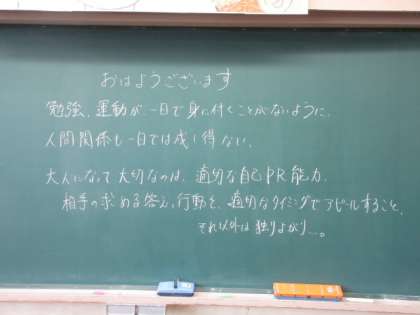 おはようございます
勉強、運動が、一日で身に付くことがないように、
人間関係も一日では成し得ない。
大人になって大切なのは、適切な自己PR能力。
相手の求める答え、行動を、適切なタイミングでアピールすること。
それ以外は独りよがり…。